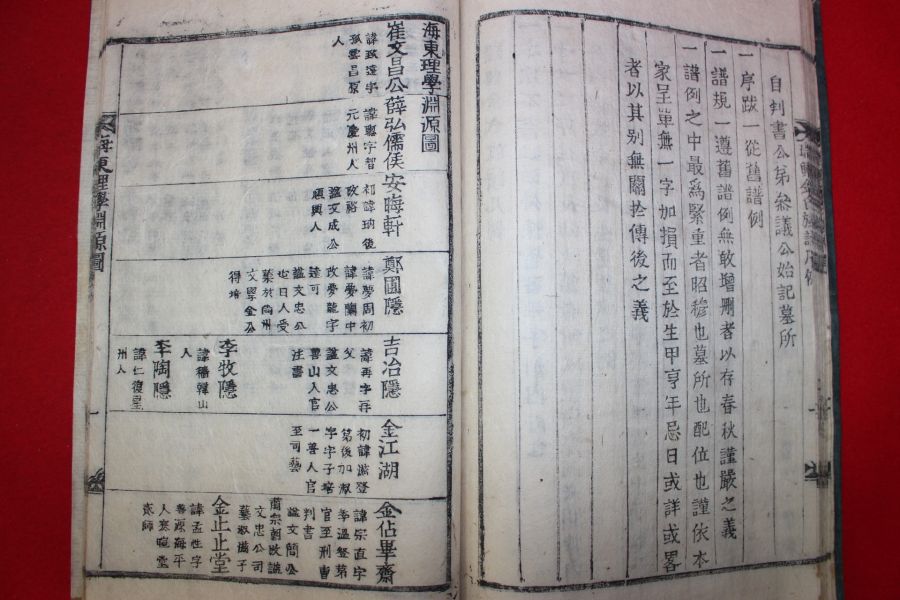 自判書公第參議公始記墓所
一序跋一從舊譜例
一譜規一遵舊譜例無敢增刪者以存春秋謹嚴之義
一譜例之中最爲緊重者昭穆也墓所也配位也謹依本
家呈單無一字加損而至於生甲享年忌日或詳或畧
者以其別無關於傳後之義
海東理學淵源圖
崔文昌公
諱致遠字
孤雲昌原
人
薛弘儒侯
諱聰字智
元慶州人
安晦軒
初諱珦後
改裕
謚文成公
順興人
鄭圃隱
諱夢周初
諱夢蘭中
改夢龍字
達可
謚文忠公
也曰人受
業於尙州
文學金公
得培
吉冶隱
諱再字再
父
謚文忠公
善山人官
注書
李牧隱
諱穡韓山
人
李陶隱
諱仁復星
州人
金江湖
初諱滋登
第後加叔
字字子培
一善人官
至司藝
金佔畢齋
諱宗直字
季溫登第
官至刑曹
判書
謚文簡公
肅宗朝改謚
文忠公司
藝叔滋子
金止止堂
諱孟性字
善源海平
人寒暄堂
丈師
海東理學淵源圖
一